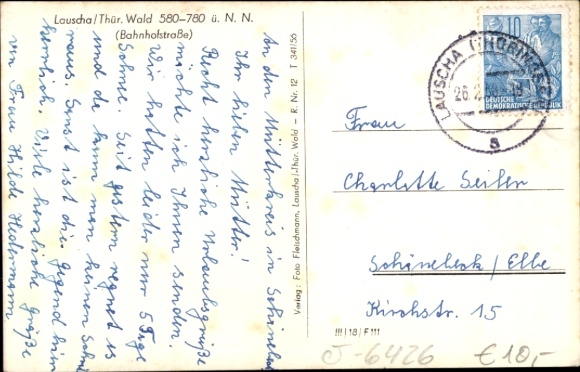 Lauscha/Thür. Wald 580-780 ü. N. N.
(Bahnhofstraße)
An den Mütterkreis in Schönebeck
Ihr lieben Mütter!
Recht herzliche Urlaubsgrüße
möchte ich Ihnen senden.
Wir hatten leider nur 5 Tage
Sonne. Seit gestern regnet es
und da kann man keinen Schritt
raus. Sonst ist die Gegend hier
herrlich. Viele herzliche Grüße
von Frau Hilde
Verlag: Foto Fleischmann, Lauscha/Thür. Wald – R. Nr. 12 T 341/55
10
DEUTSCHE
DEMOKRATISCHE REPUBLIK
LAUSCHA (THÜRINGEN)
a
Frau
Charlotte Seiler
Schönebeck / Elbe
Kirchstr. 15
III/18/F 111
J-6426 €10,-